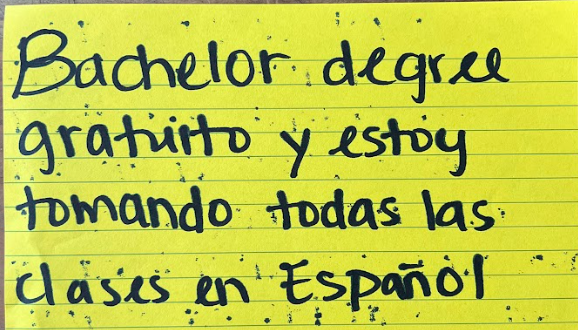 Bachelor degree
gratuito y estoy
tomando todas las
clases en Español